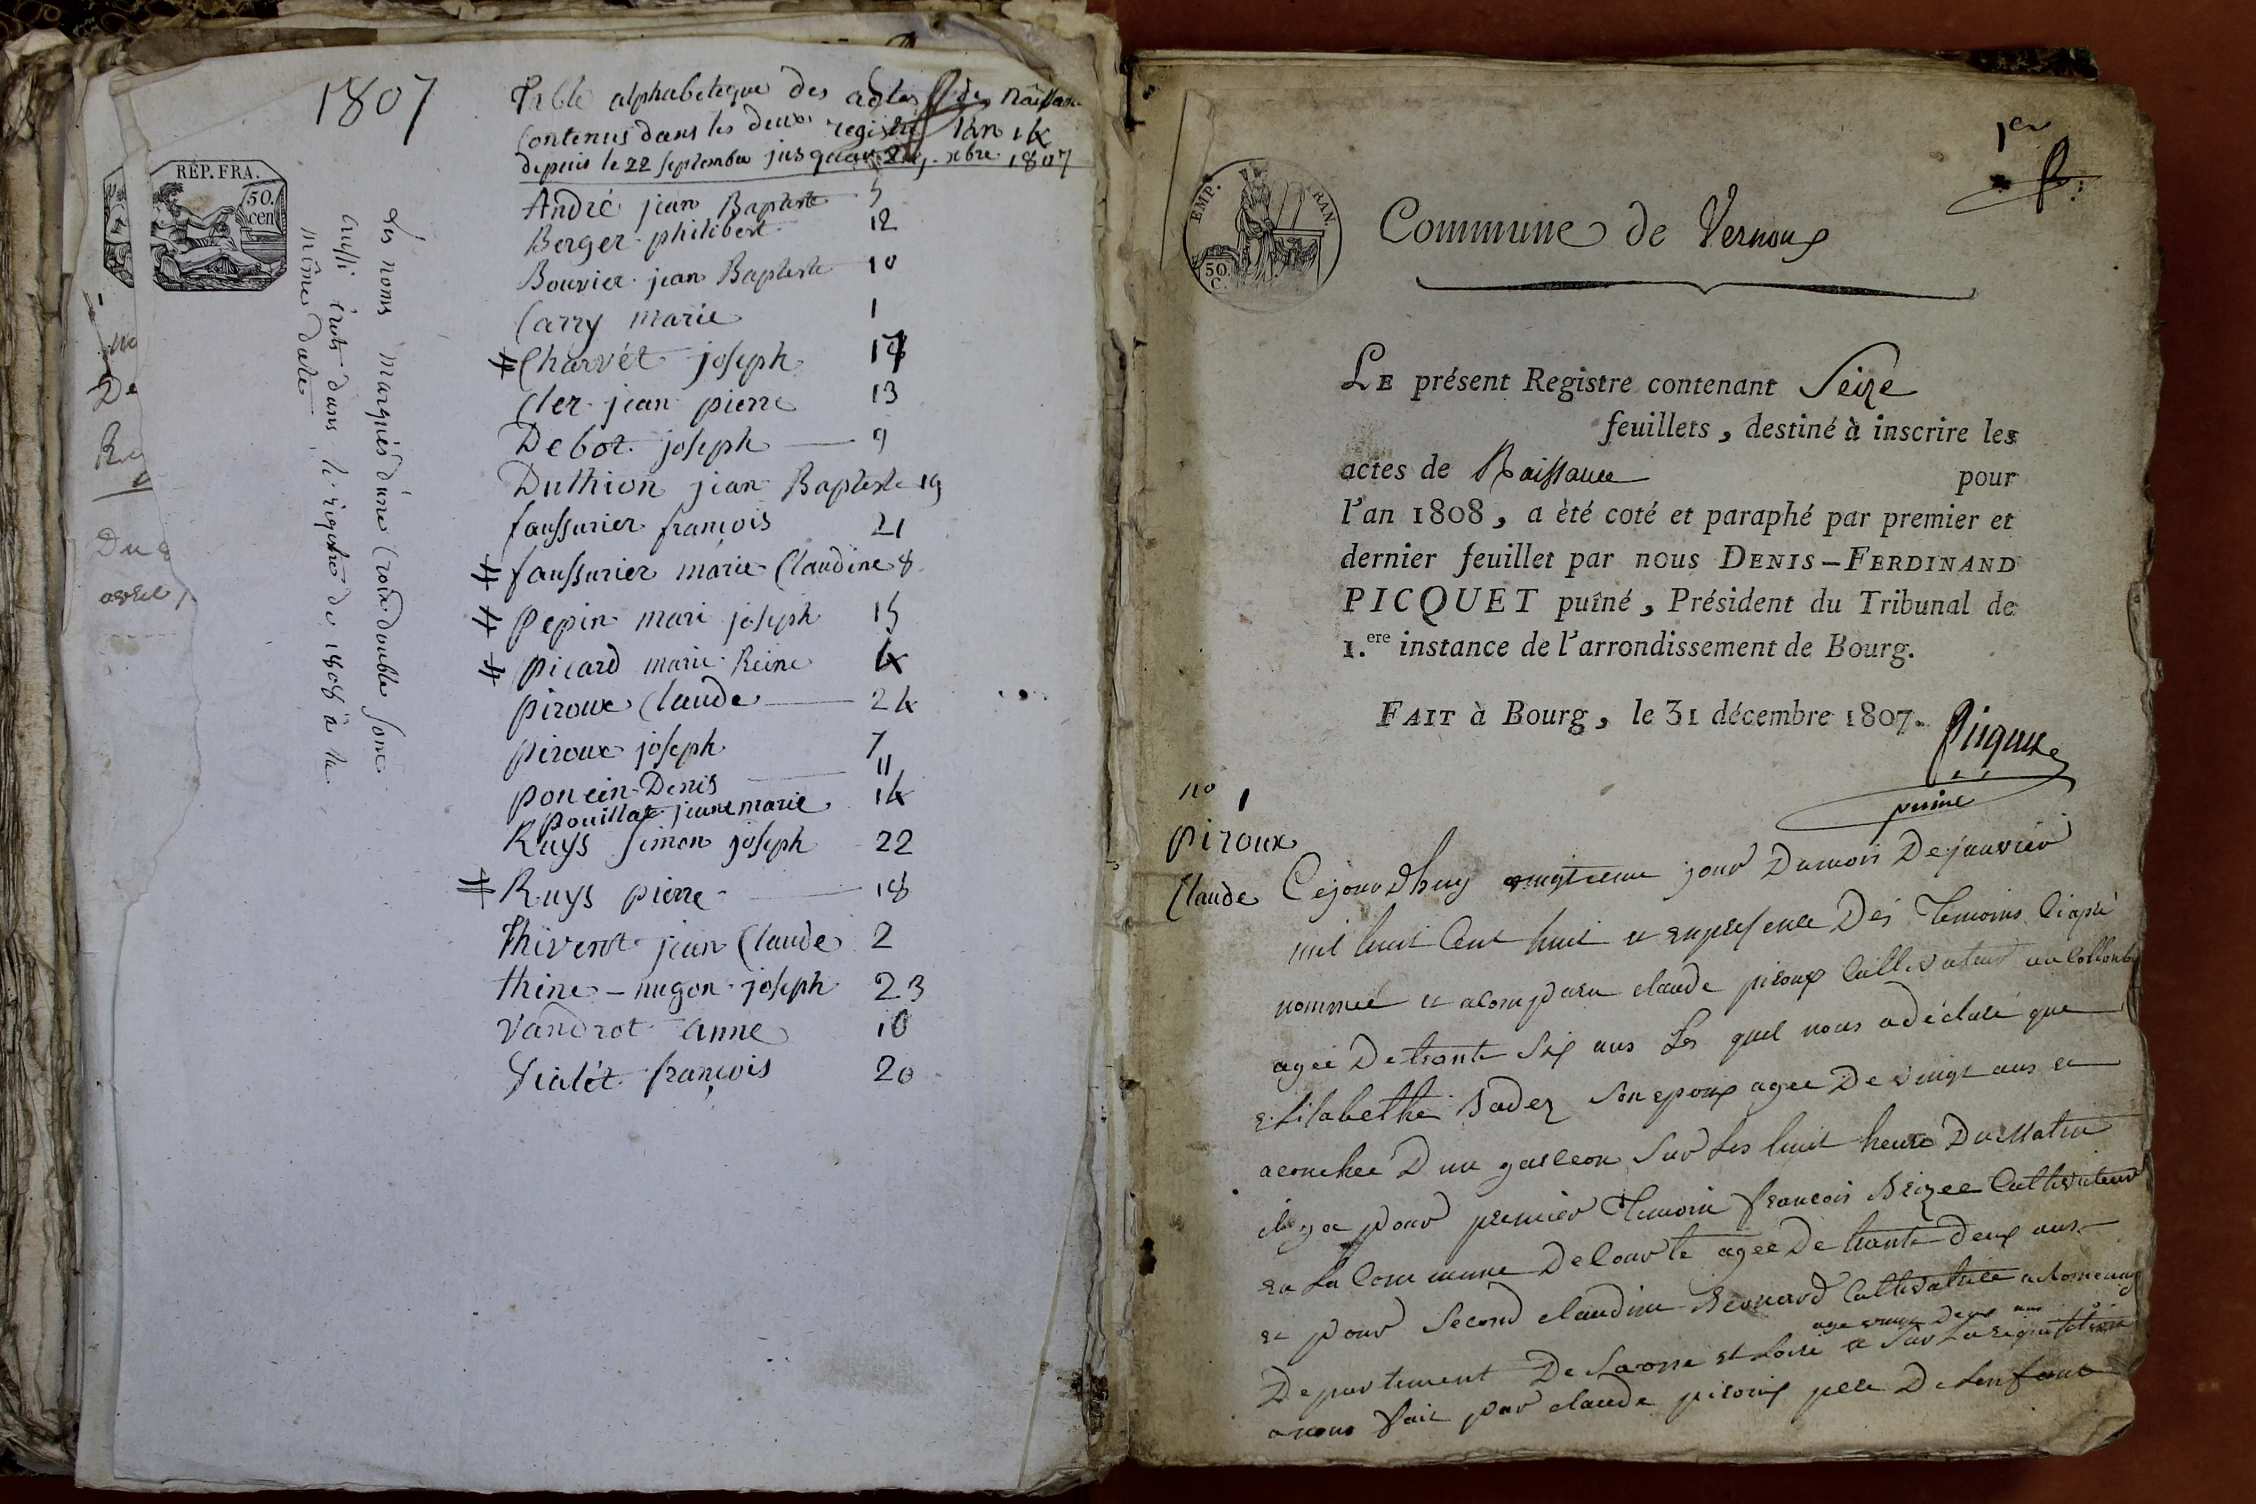 1807
Table alphabetique des actes des naissan
Contenus dans les deux registre l'an 14
depuis le 22 septembre jusquau xbre 1807
RÉP. FRA.
50.
cen
Les noms marqués d'une Croix double sont
aussi écrits dans le registre de 1808 à la
même date
André jean Baptiste 5
Berger philibert 12
Bouvier jean Baptiste 10
Carry marie 1
Charvét joseph 17
Cler jean pierre 13
Debot joseph 9
Duthion jean Baptiste 19
faussurier françois 21
faussurier marie Claudine 8
pepin mari joseph 15
picard marie Reine 4
piroux Claude 24
piroux joseph 7
poncin Denis 11
pouillat jeanne marie 14
Ruys simon joseph 22
Ruys pierre 18
Thivent jean Claude 2
thine - nugon joseph 23
Vandrot anne 16
Vialét françois 20
1er
EMP. FRAN.
50.
C.
Commune de Vernoux
LE présent Registre contenant Seize
feuillets, destiné à inscrire les
actes de Naissance pour
l'an 1808, a èté coté et paraphé par premier et
dernier feuillet par nous DENIS-FERDINAND
PICQUET puîné, Président du Tribunal de
1.ere instance de l'arrondissement de Bourg.
FAIT à Bourg, le 31 décembre 1807.
Picquet
puine
no 1
piroux
Claude
Cejourdhuy vingtieme jour Dumois Dejanvier
mil huit Cent huit et enpresence Des Temoins Ciaprè
nommée et acomparu claude piroux Cultivateur
agée De trante Six ans Les quel nous adéclaré que
Elisabethe Badez Son epoux agee De vingt ans et
acouchee Dun garceon Sur Les huit heure Du Matin
il y a pour premier Temoin francois Brizee Cultivateur
en La Commune De Courte agee De trante Deux ans
et pour Second claudine Bernard Cultivatrice
age Deux ans
Departement De Saonne et Loire et Sur La requisition
anous fait par claude piroux pere De Lenfant